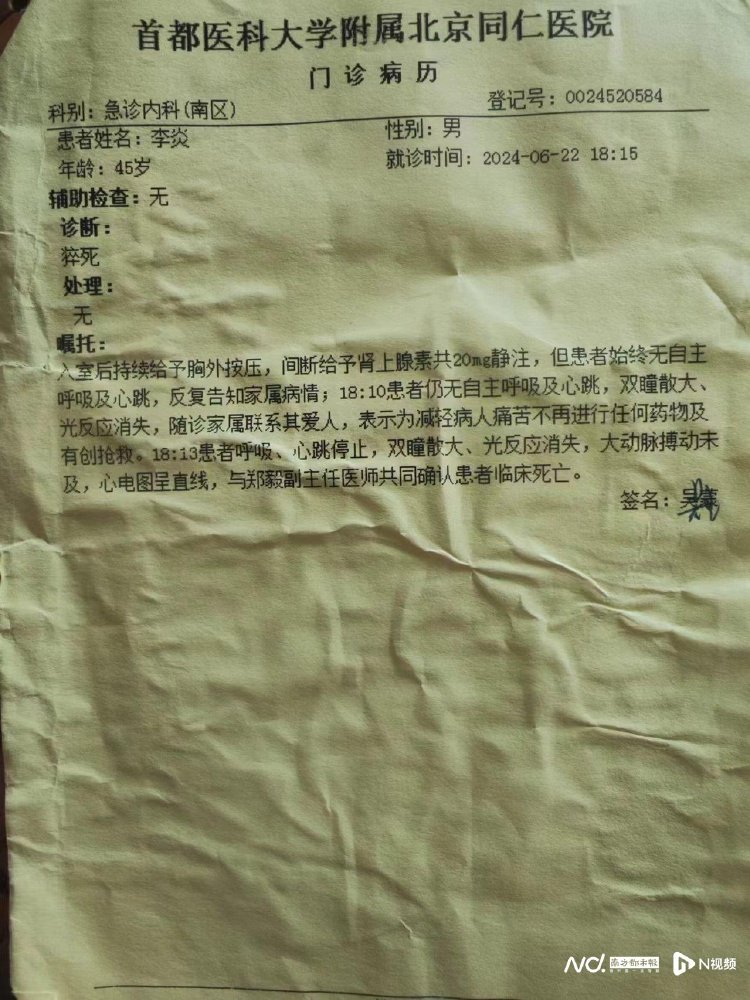 首都医科大学附属北京同仁医院
门诊病历
科别：急诊内科(南区) 登记号：0024520584
患者姓名：李炎 性别：男
年龄：45岁 就诊时间：2024-06-22 18:15
辅助检查：无
诊断：
猝死
处理：
无
嘱托：
入室后持续给予胸外按压，间断给予肾上腺素共20mg静注，但患者始终无自主
呼吸及心跳，反复告知家属病情；18:10患者仍无自主呼吸及心跳，双瞳散大、
光反应消失，随诊家属联系其爱人，表示为减轻病人痛苦不再进行任何药物及
有创抢救。18:13患者呼吸、心跳停止，双瞳散大、光反应消失，大动脉搏动未
及，心电图呈直线，与郑毅副主任医师共同确认患者临床死亡。
签名：
N视频